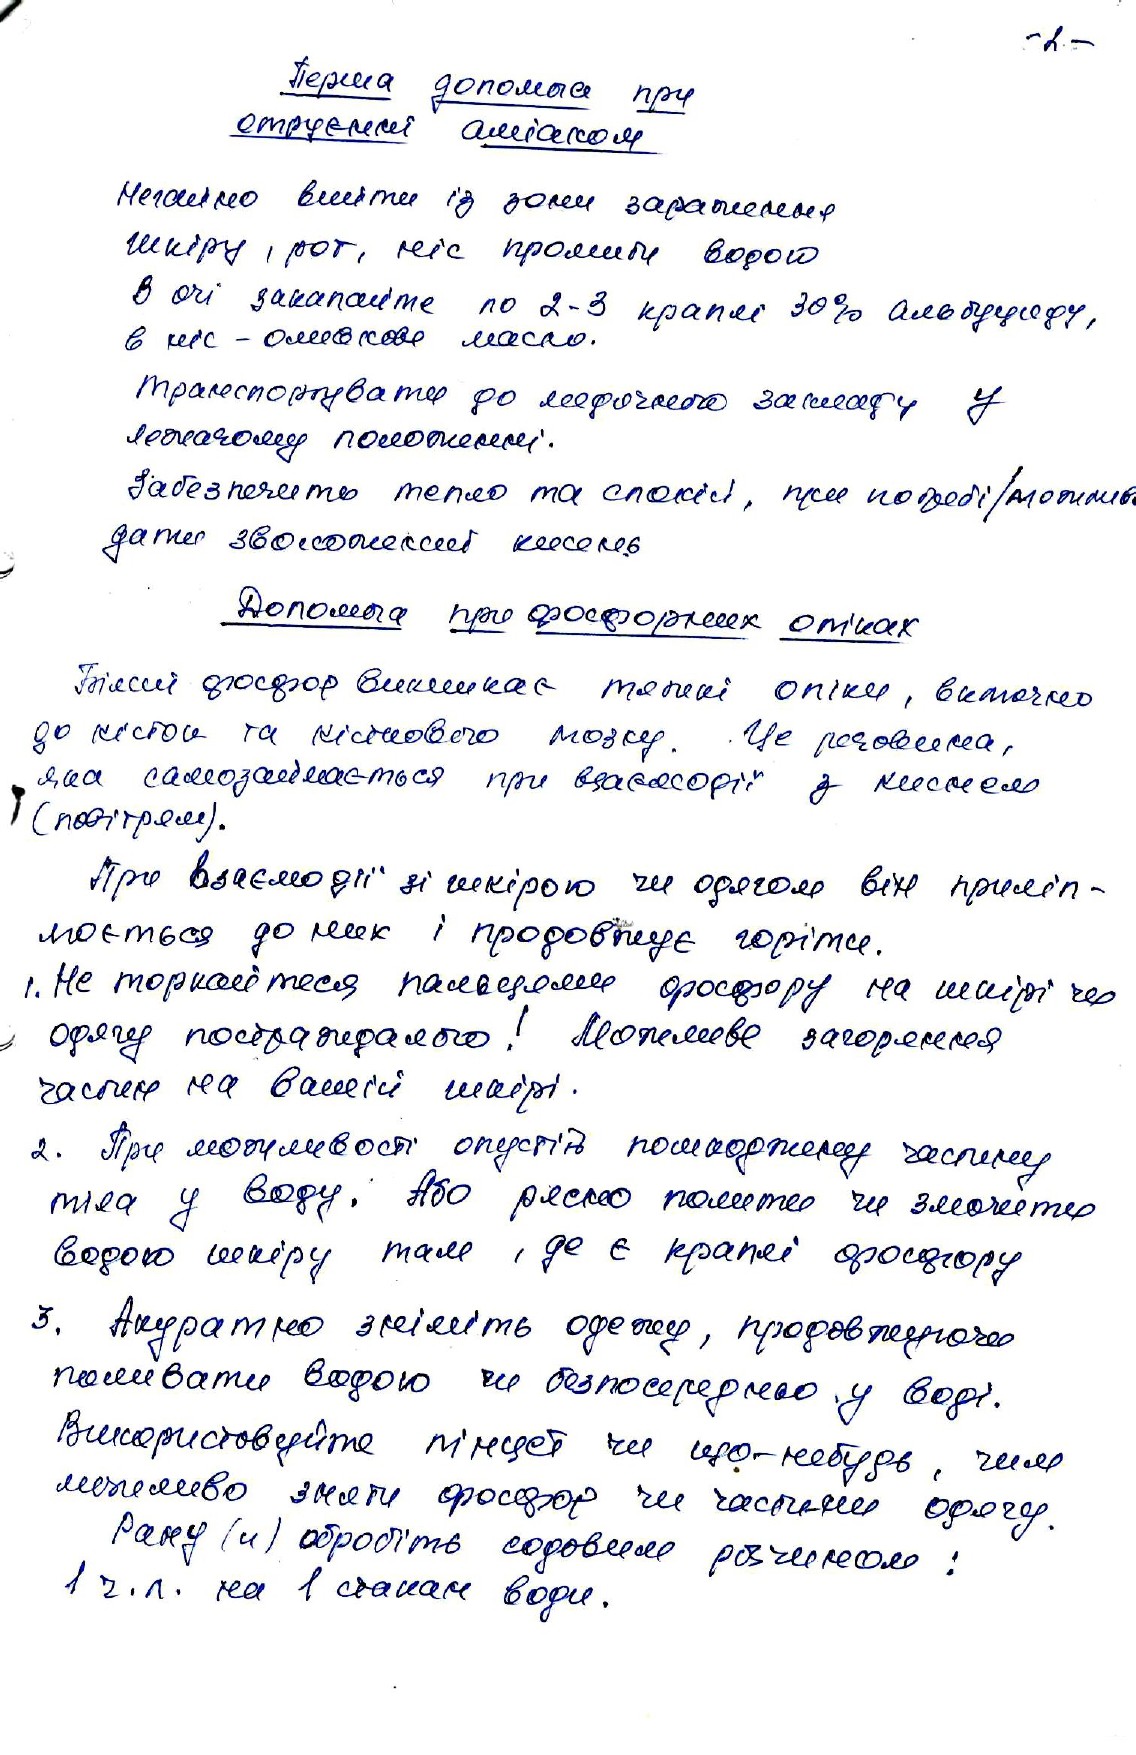 -2-
Перша допомога при
отруєнні аміаком
Негайно вийти із зони зараження
шкіру, рот, ніс промити водою
В очі закапайте по 2-3 краплі 30% альбуциду,
в ніс - оливкове масло.
Транспортувати до медичного закладу у
лежачому положенні.
Забезпечити тепло та спокій, при потребі/можливо
дати зволожений кисень
Допомога при фосфорних опіках
Білий фосфор викликає тяжкі опіки, включно
до кісток та кісткового мозку. Це речовина,
яка самозаймається при взаємодії з киснем
(повітрям).
При взаємодії зі шкірою чи одягом він приліп-
люється до них і продовжує горіти.
1. Не торкайтеся пальцями фосфору на шкірі чи
одягу постраждалого! Можливе загоряння
частин на вашій шкірі.
2. При можливості опустіть пошкоджену частину
тіла у воду. Або рясно полити чи змочити
водою шкіру там, де є краплі фосфору
3. Акуратно зніміть одежу, продовжуючи
поливати водою чи безпосередньо у воді.
Використовуйте пінцет чи що-небудь, чим
можливо зняти фосфор чи частини одягу.
Рану (и) обробіть содовим розчином:
1 ч.л. на 1 стакан води.